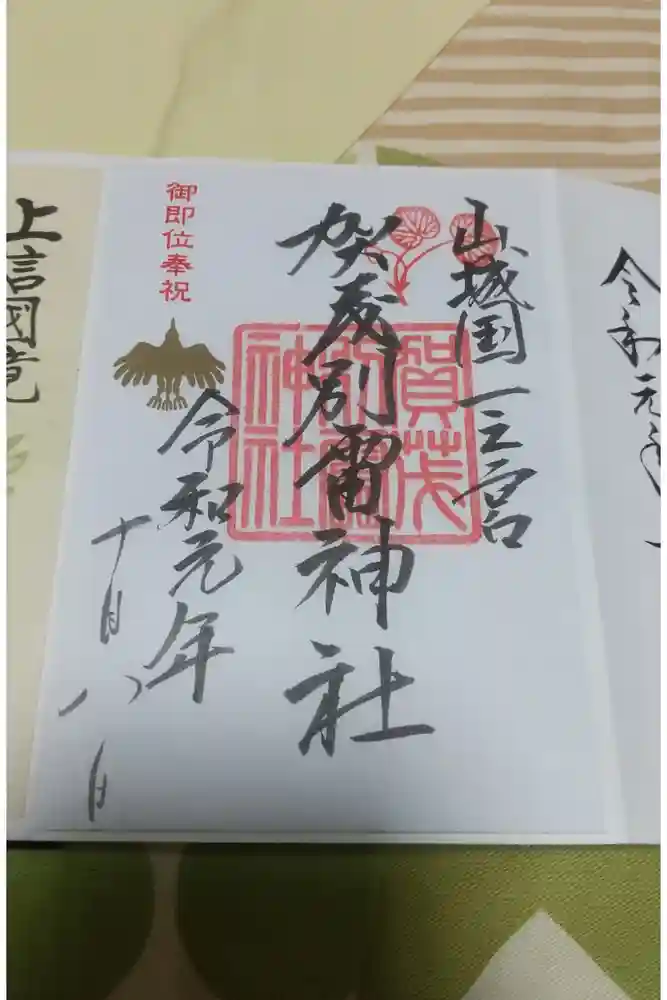 山城国一之宮
賀茂別雷神社
賀茂
別雷
神社
御即位奉祝
令和元年
十月八日
令和元年
上信國境